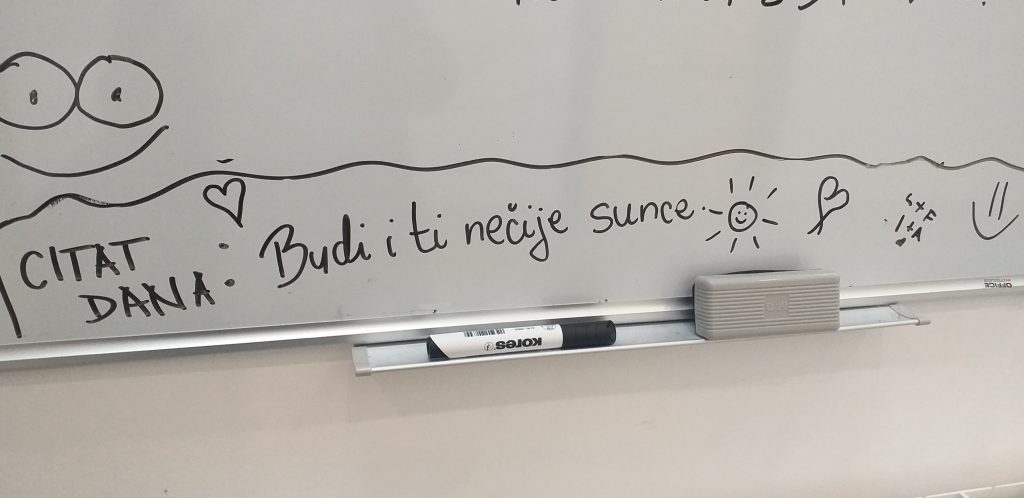 CITAT
DANA: Budi i ti nečije sunce.
kores
OFFICE